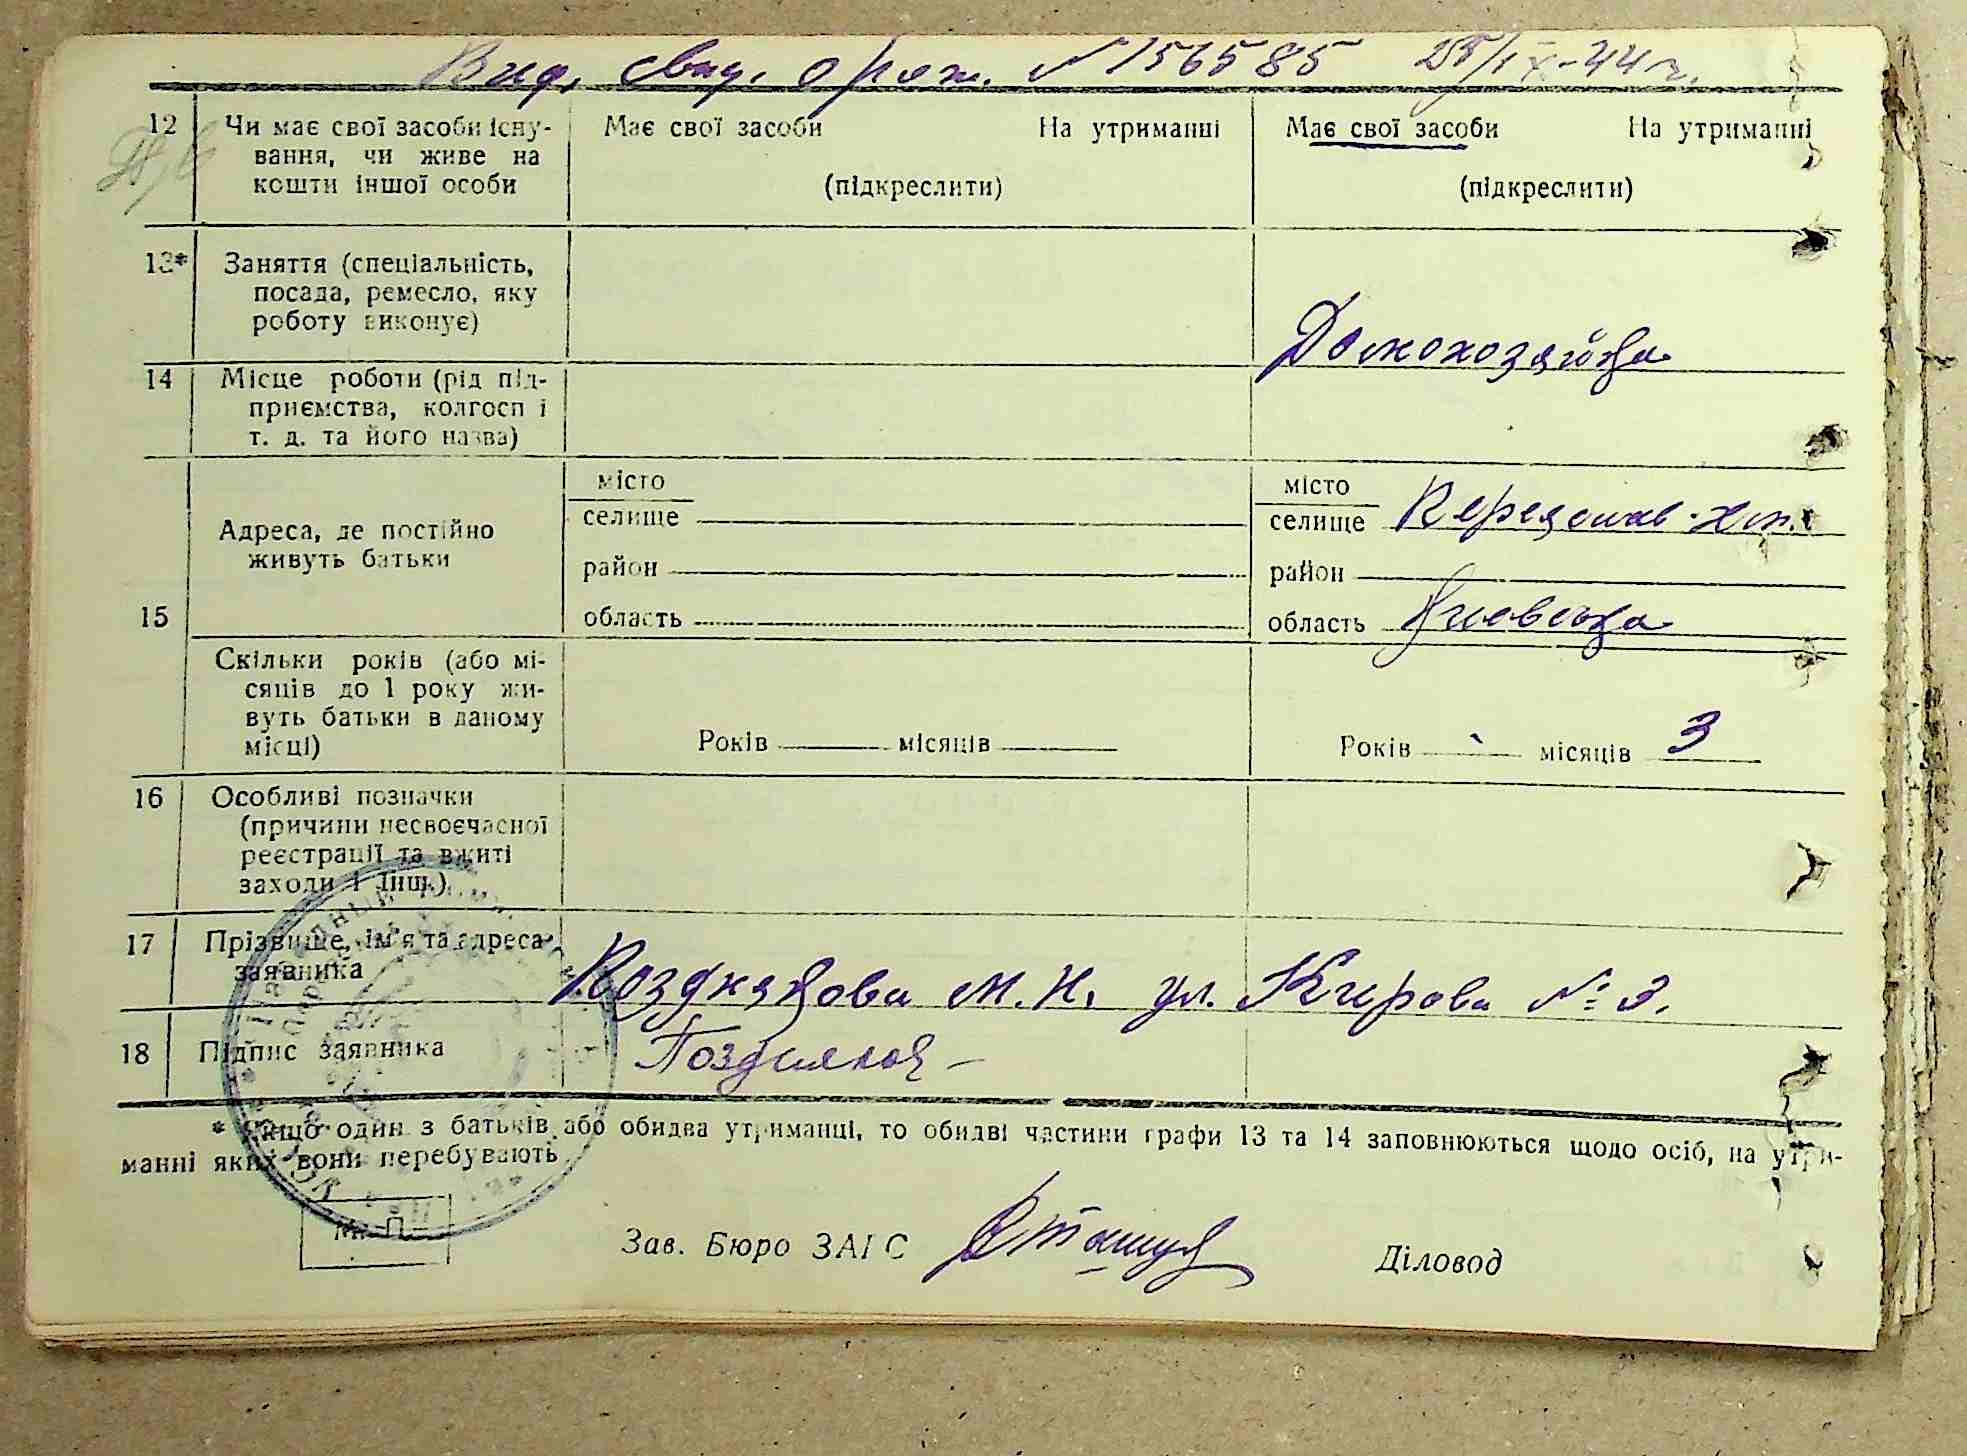 Выд. свид. о рож. № 156585 25/IX-44 г.
12 Чи має свої засоби існу-
вання, чи живе на
кошти іншої особи
Має свої засоби На утриманні
(підкреслити)
Має свої засоби На утриманні
(підкреслити)
13* Заняття (спеціальність,
посада, ремесло, яку
роботу виконує)
Домохозяйка
14 Місце роботи (рід під-
приємства, колгосп і
т. д. та його назва)
15 Адреса, де постійно
живуть батьки
місто
селище
район
область
місто
селище Переяслав-Хм.
район
область Киевская
Скільки років (або мі-
сяців до 1 року жи-
вуть батьки в даному
місці)
Років місяців
Років - місяців 3
16 Особливі позначки
(причини несвоєчасної
реєстрації та вжиті
заходи і інш.)
17 Прізвище, ім'я та адреса
заявника
Позднякова М. Н. ул. Кирова № 3.
18 Підпис заявника
Поздняков
* Якщо один з батьків або обидва утриманці, то обидві частини графи 13 та 14 заповнюються щодо осіб, на утри-
манні яких вони перебувають.
М. П.
Зав. Бюро ЗАГС
Діловод